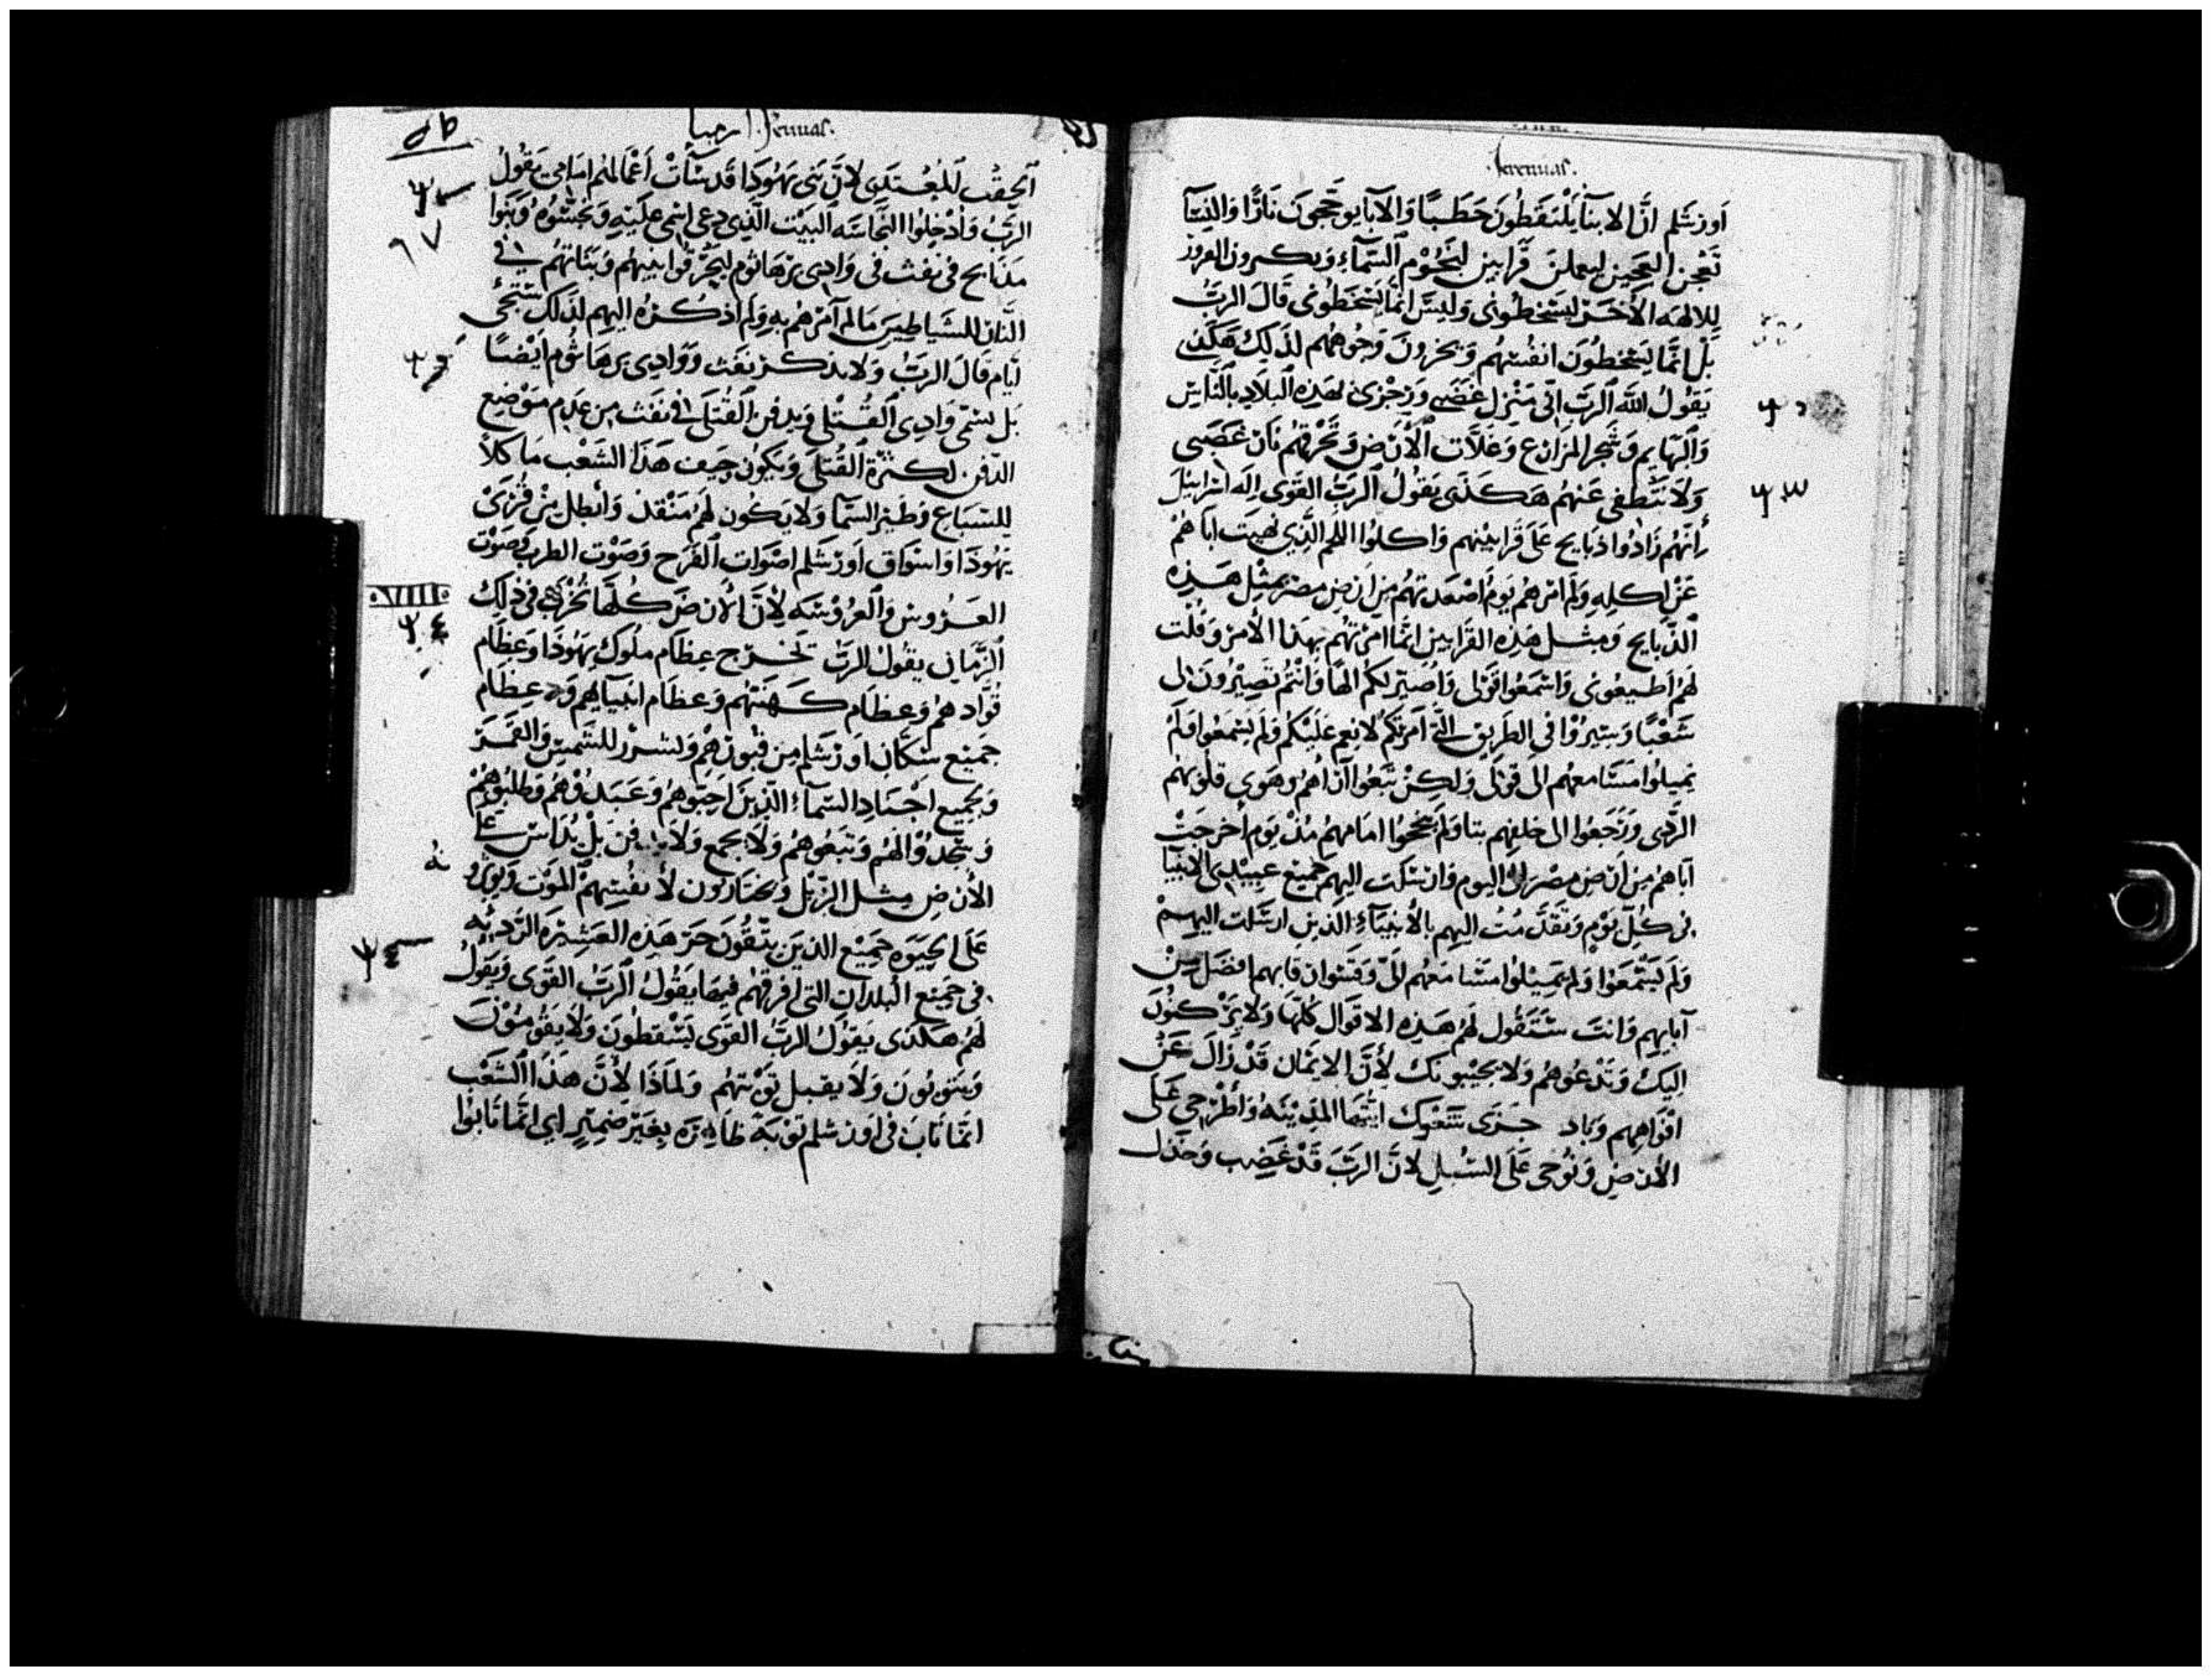 Jeremias.
اورشلم انّ الابنا يلتقطون حطبًا والابا يوججون نارًا والنسا
تعجن العجين ليعملن قرابين لنجوم السماء
للالهه الأخر ليسخطونى وليس انما يسخطونى قال الرب
بل انما يسخطون انفسهم ويخزون وجوههم لذلك هكذى
يقول الله الرب انى منزل غضبى ورجزى بهذه البلاد بالناس
والبهايم وشجر المزارع وغلات الأرض وتحرقهم نار غضبى
ولا تنطفى عنهم هكذى يقول الرب القوى اله اسرائيل
انهم زادوا ذبايح على قرابينهم واكلوا اللحم الذى نهيت اباهم
عن اكله ولم امرهم يوم اصعدتهم من ارض مصر بمثل هذه
الذبايح ومثل هذه القرابين انما امرتهم بهذا الأمر وقلت
لهم اطيعونى واسمعوا قولى واصير لكم الهًا وانتم تصيرون لى
شعبًا وسيروا فى الطريق التى امرتكم لانعم عليكم ولم يسمعوا ولم
يميلوا مسامعهم الى قولى ولكن تبعوا اراهم وهوى قلوبهم
الردى ورجعوا الى خلفهم امامهم مذ يوم أخرجت
اباهم من ارض مصر الى اليوم وارسلت اليهم جميع عبيدى الانبيا
فى كل يوم وتقدمت اليهم بالأنبياء الذين ارسلت اليهم
ولم يسمعوا ولم يميلوا مسامعهم الىّ وقسوا رقابهم افضل من
آبايهم وانت ستقول لهم هذه الاقوال كلها ولا يركنون
اليك وتدعوهم ولا يجيبونك لأن الايمان قد زال عن
افواههم وباد جزى شعرك ايتها المدينه واطرحى على
الأرض ونوحى على السبل لان الرب قد غضب وخذل
ارميا Jeremias.
الحقب المعتدى لان بنى يهودا قد سأت أعمالهم امامى يقول
الرب وادخلوا النجاسه البيت الذى دعى اسمى عليه ونجسوه وبنوا
مذابح فى نفث فى وادى برهاثوم ليحرقوا بنيهم وبناتهم فى
النار للشياطين ما لم آمرهم به ولم اذكره اليهم لذلك ستجى
ايام قال الرب ولا يذكر نفث ووادى برهاثوم ايضًا
بل يسمى وادى القتلى ويدفن القتلى فى نفث من عدم موضع
الدفن لكثرة القتلى ويكون جيف هذا الشعب ماكلاً
للسباع وطير السما ولا يكون لهم منقذ وأبطل من قرى
يهودا واسواق اورشلم اصوات الفرح وصوت الطرب وصوت
العروس والعروسه لأن الأرض كلها تخرب فى ذلك
الزمان يقول الرب تخرج عظام ملوك يهودا وعظام
قوادهم وعظام كهنتهم وعظام انبيآهم وعظام
جميع سكان اورشلم من قبورهم وتنشر للشمس والقمر
وجميع اجناد السماء الذين احبوهم وعبدوهم وطلبوهم
وسجدوا لهم وتبعوهم ولا يجمع ولا يدفن بل يداس على
الأرض مثل الزبل ويختارون لأنفسهم الموت
على الحيوه جميع الذين يبقون من هذه العشيره الرديه
فى جميع البلدان التى افرقهم فيها يقول الرب القوى ويقول
لهم هكذى يقول الرب القوى يسقطون ولا يقومون
ويتوبون ولا يقبل توبتهم ولماذا لأن هذا الشعب
انما تاب فى اورشلم توبة ظاهره بغير ضمير اى انما تابوا